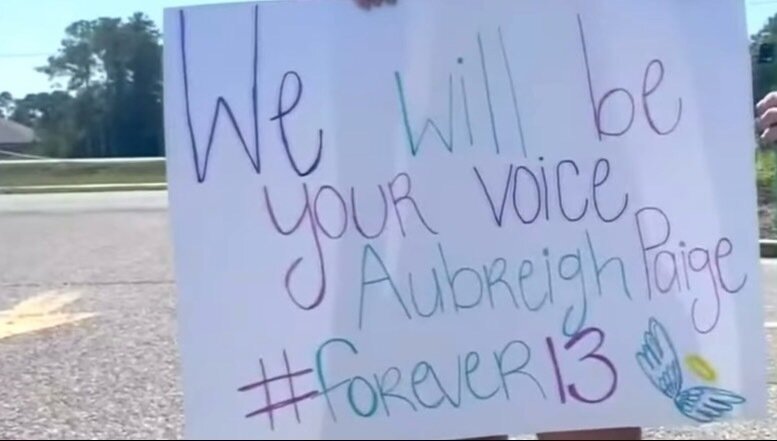 We will be
your voice
Aubreigh Paige
#forever13